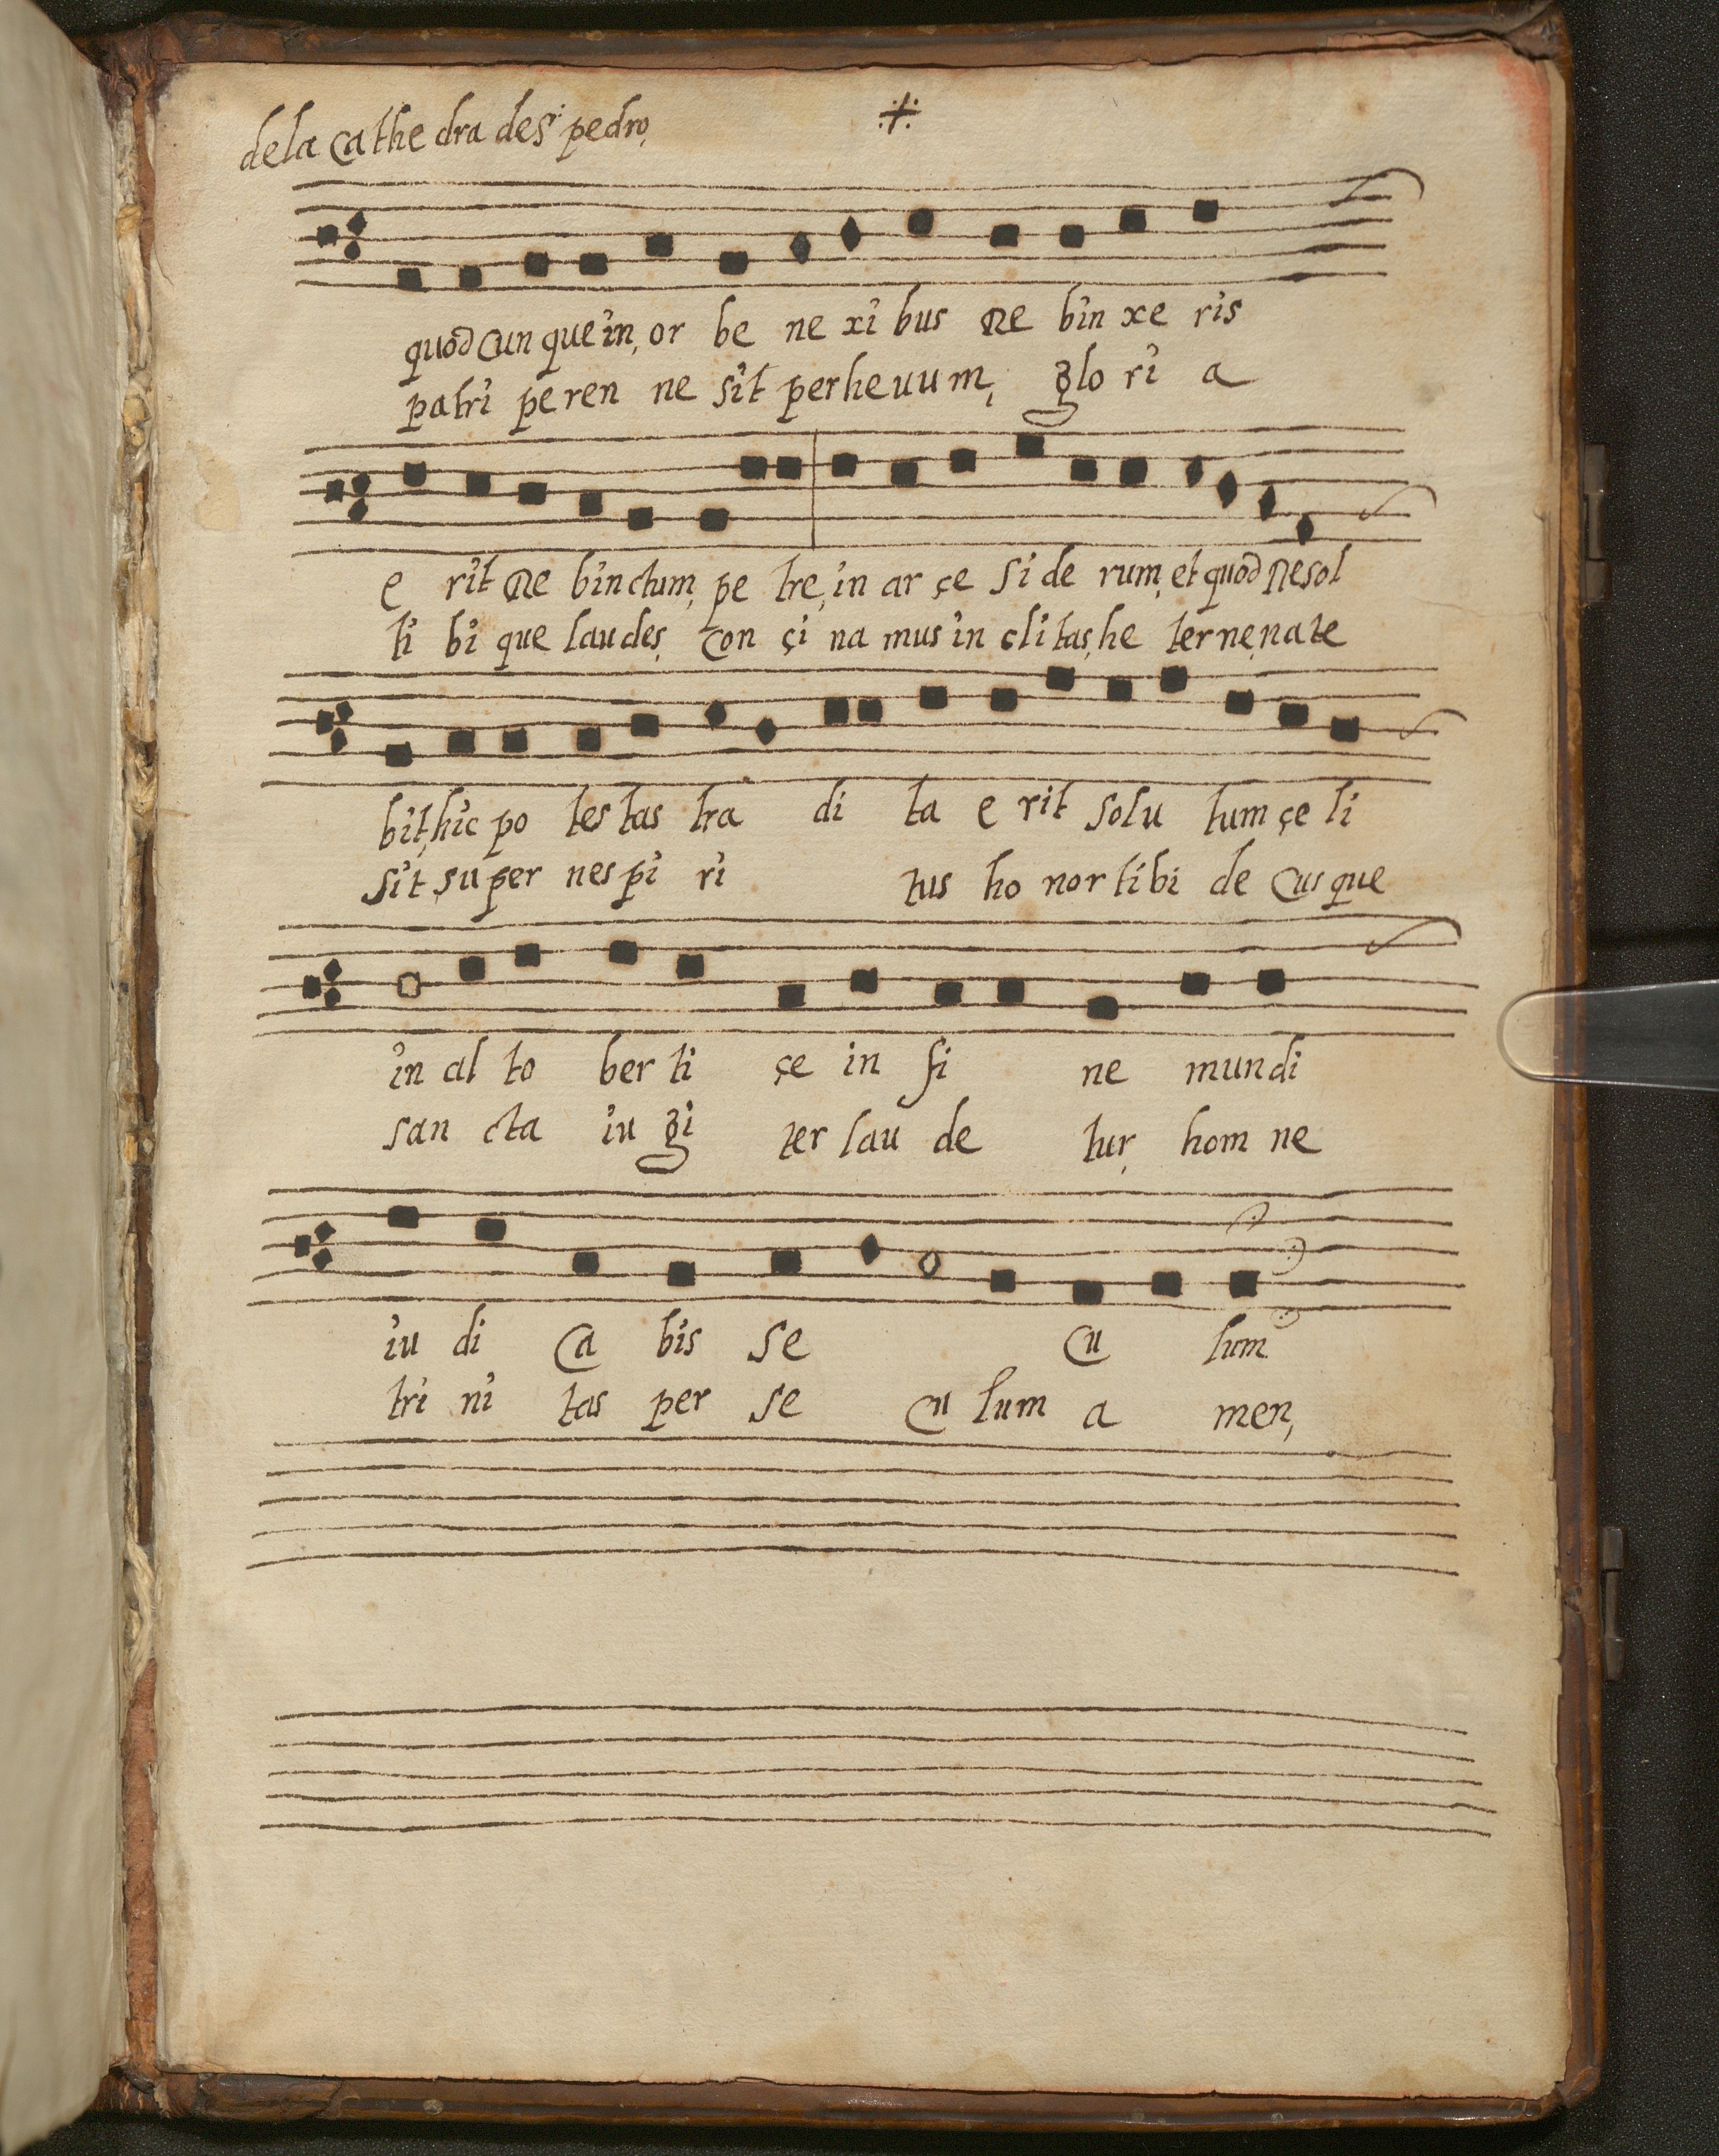 dela cathe dra des. pedro,
quod cun que in, or be ne xi bus Re bin xe ris
patri peren ne sit perhevum, glo ri a
e rit Re binctum, pe tre, in ar çe si de rum, et quod Resol
ti bi que laudes, con çi na mus in cli tas, he terne, nate
bit, hic po tes tas tra di ta e rit solu tum çe li
sit, super nes pi ri tus ho nor tibi de cus que
in al to ber ti çe in fi ne mundi
san cta iu gi ter lau de tur, hom ne
iu di ca bis se cu lum
tri ni tas per se cu lum a men,